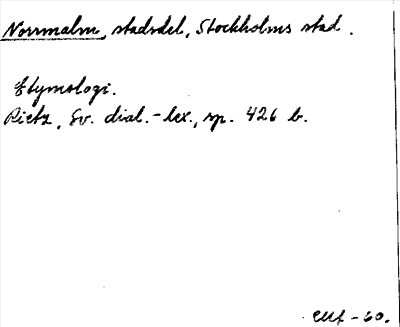 Norrmalm, stadsdel, Stockholms stad.
Etymologi.
Rietz, Sv. dial.-lex., sp. 426 b.
-60.